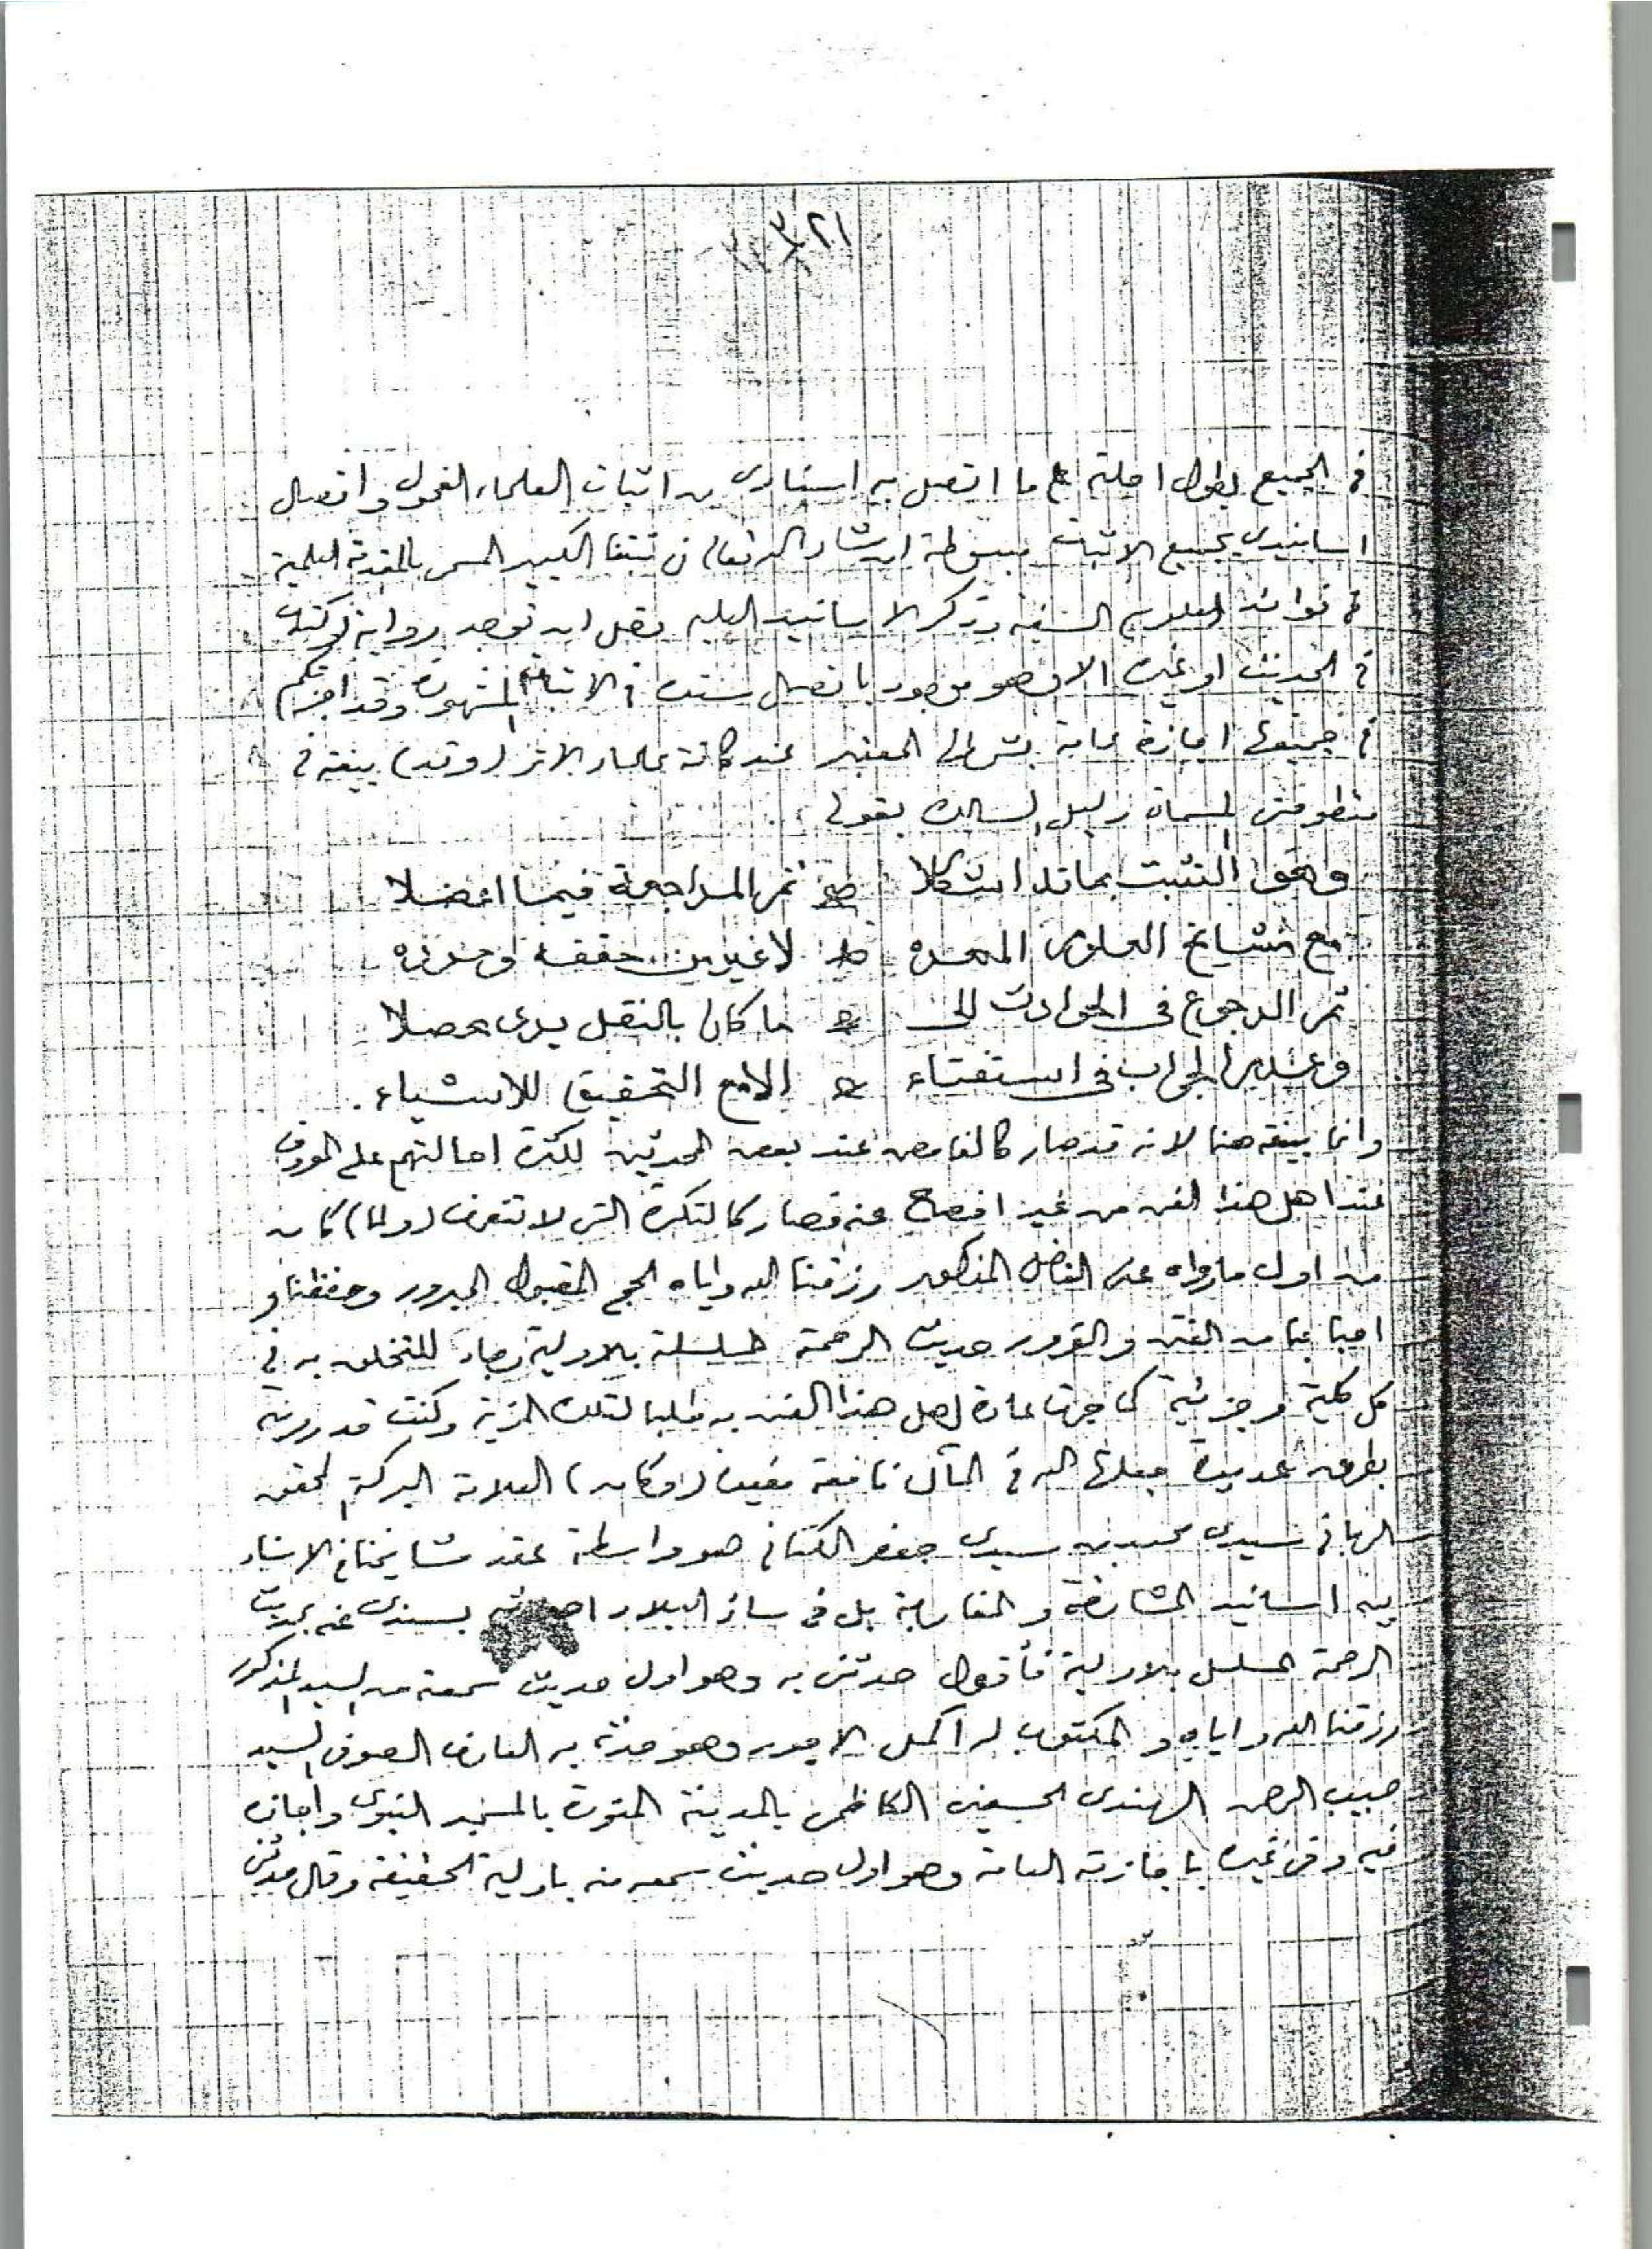 ٢١
في الجميع يطول احلته على ما اتصل به اسنادى من اثبات العلماء الفحول واتصال
اسانيدى بجميع الاثبات مبسوطة ان شاء الله تعالى في ثبتنا الكبير المسمى بالمقدمة العلمية
في فوائد العلوم السنية وتذكر الاسانيد العلية وقل ان توجد رواية او كتاب
في الحديث او غيره الا وهو موجود باتصال سنده في الاثبات المشهورة وقد اجزتكم
في جميعها اجازة عامة بشرطها المعتبر عند كافة علماء الاثر (وقد) بينته في
منظومتى المسماة دليل السالك بقولى
وهو التثبت بما قد اشكلا ثم المراجعة فيما اعضلا
مع مشايخ العلوم المهره لا غير من حققه وحرره
ثم الرجوع في الحوادث الى ما كان بالنقل يرى محصلا
وعدم الجواب في استفتاء الا مع التحقيق للاشياء .
وانما بينته هنا لانه قد صار كالغامض عند بعض المحدثين لكثرة احالتهم على المعروف
عند اهل هذا الفن من غير افصاح عنه فصار كالنكرة التى لا تتعرف (ولما) كان
من اول ما رواه عنى الفاضل المذكور رزقنا الله واياه الحج المقبول المبرور وحفظنا و
احبابنا من الفتن والغرور حديث الرحمة المسلسلة بالاولية رجاء للتخلق به في
كل كلية وجزئية كما جرت عادة اهل هذا الفن به طلبا لتلك المزية وكنت قد رويته
بطرق عديدة جعلها الله في المآل نافعة مفيدة (وكان) العلامة البركة المحقق
الربانى سيدى محمد بن سيدى جعفر الكتانى هو واسطة عقد مشايخنا في الاسناد
بين اسانيد المشارقة والمغاربة بل في سائر البلاد بسندى عنه بحديث
الرحمة المسلسل بالاولية فأقول حدثنى به وهو اول حديث سمعته من السيد المذكور
رزقنا الله واياه والمكتوب له اكمل الاجور وهو حدثه به العارف الصوفى السيد
حبيب الرحمن الهندى الحسينى الكاظمى بالمدينة المنورة بالمسجد النبوى واجازه
فيه وفى غيره باجازته العامة وهو اول حديث سمعه منه باولية حقيقية وقال حدثنى